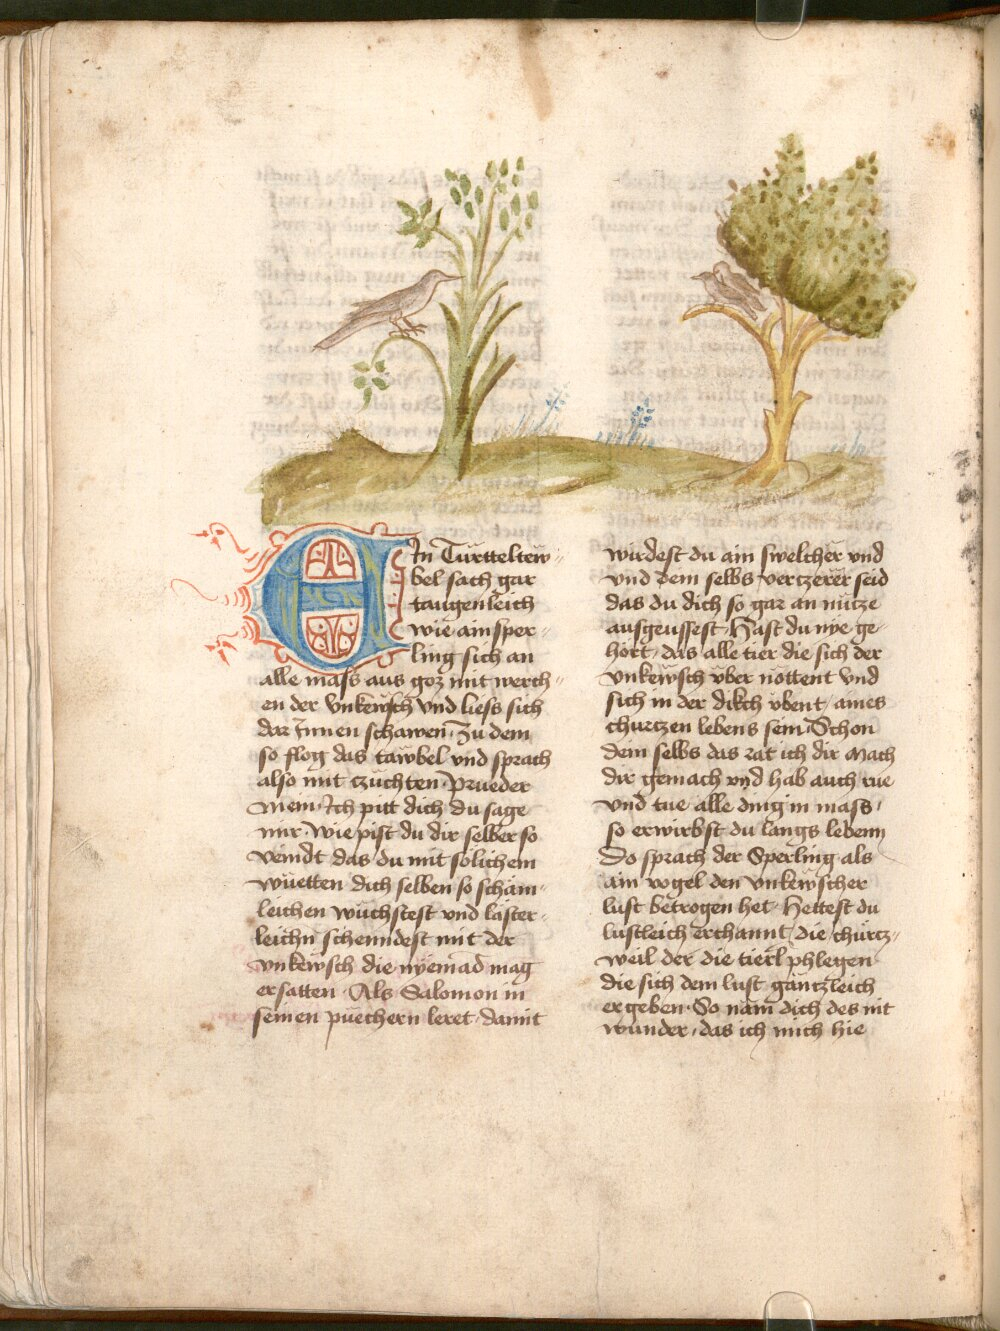 Ain Türttelteẅ-
bel sach gar
taugenleich
wie ain sper-
ling sich an
alle mass aus goz mit werch-
en der vnkewsch vnd liess sich
dar Innen schawen · Zu dem
so flog das täwbel vnd sprach
also mit czüchten · Prueder
mein · Ich pitt dich du sage
mir · wie pist du dir selber so
veindt das du mit sölichem
wüetten dich selben so schäm-
leichen wüchstest vnd läster-
leichn schenndest mit der
vnkewsch die nÿemād mag
ersatten · Als Salomon in
seinen puechern leret · damit
wirdest du ain swelcher vnd
vnd dem selbs verczerer seid
das du dich so gar an nücze
ausgeussest · Hast du nÿe ge-
hört · das alle tier die sich der
vnkewsch vber nöttent vnd
sich in der dikch vbent / aines
churczen lebens sein · Schon
dem selbs das rat ich dir mach
dir gemach vnd hab auch rue
vnd tue alle ding in mass ·
so erwirbst du langs lebenn
Do sprach der Sperling als
ain vogel den vnkewscher
lust betrogen het · Hettest du
lustleich erchannt die chürcz-
weil der die tierl phlegen
die sich dem lust gäntzleich
ergeben · So näm dich des nit
wunder · das ich mich hie